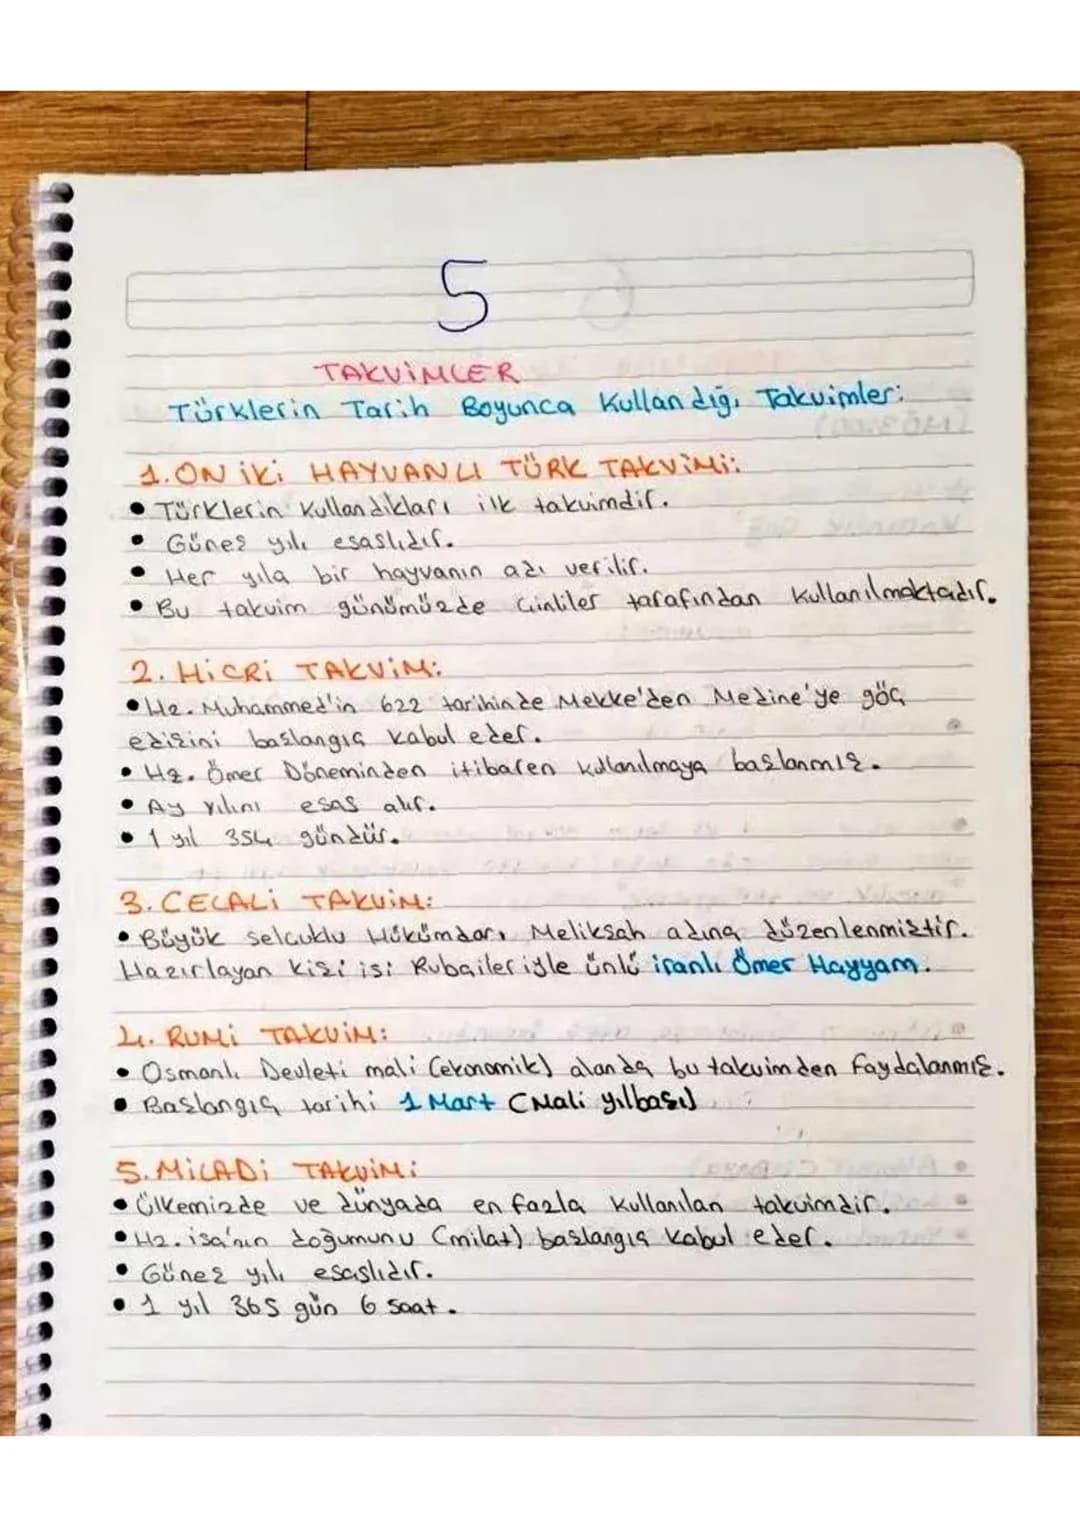 5
TAKVİMLER
Türklerin Tarih Boyunca Kullandığı Takvimler:
1. ON İKİ HAYVANLI TÜRK TAKVİMİ:
• Türklerin kullandıkları ilk takvimdir.
• Güneş yılı esaslıdır.
• Her yıla bir hayvanın adı verilir.
• Bu takvim günümüzde Çinliler tarafından kullanılmaktadır.
2. HİCRİ TAKVİM:
• Hz. Muhammed'in 622 tarihinde Mekke'den Medine'ye göç
edişini başlangıç kabul eder.
• Hz. Ömer Döneminden itibaren kullanılmaya başlanmış.
• Ay yılını esas alır.
• 1 yıl 354 gündür.
3. CELALİ TAKVİM:
• Büyük selçuklu Hükümdarı Melikşah adına düzenlenmiştir.
Hazırlayan kişi ise Rubaileriyle ünlü İranlı Ömer Hayyam.
4. RUMİ TAKVİM:
• Osmanlı Devleti mali (ekonomik) alanda bu takvimden faydalanmış.
• Başlangıç tarihi 1 Mart (Mali yılbaşı)
5. MİLADİ TAKVİM:
• Ülkemizde ve dünyada en fazla kullanılan takvimdir.
• Hz. isa'nın doğumunu (milat) başlangıç kabul eder.
• Güneş yılı esaslıdır.
• 1 yıl 365 gün 6 saat.